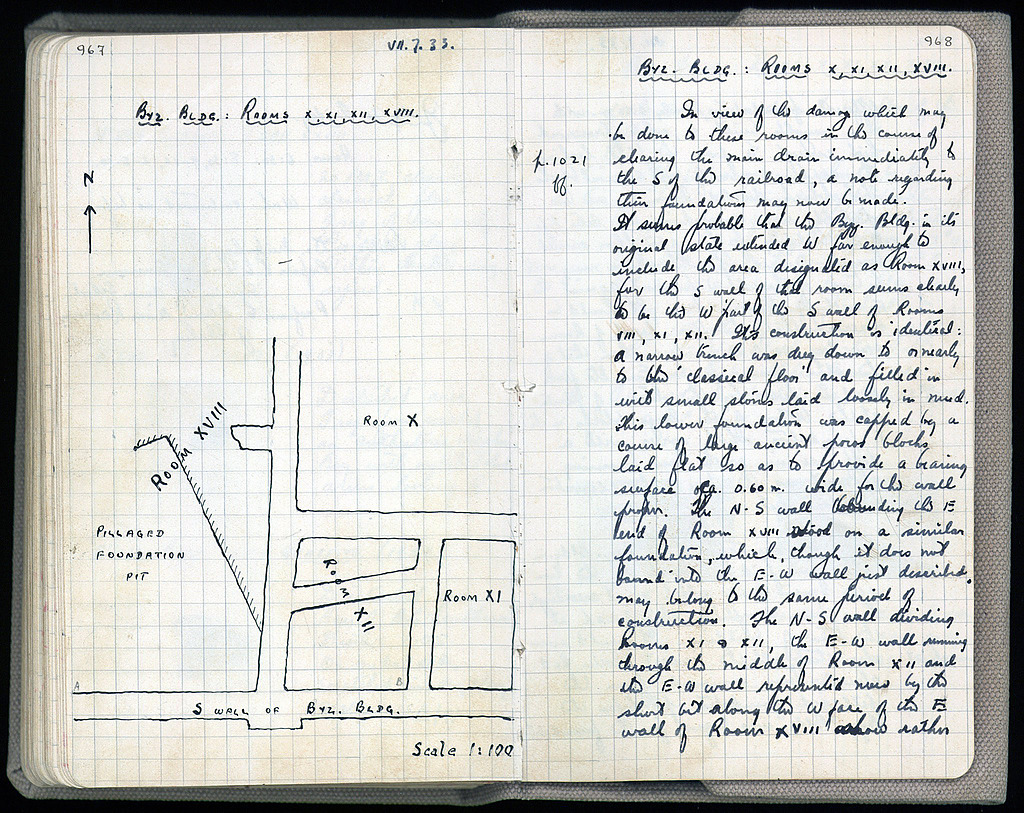 967
VII.7.33.
BYZ. BLDG.: ROOMS X, XI, XII, XVIII.
N
ROOM XVIII
ROOM X
PILLAGED
FOUNDATION
PIT
ROOM XII
ROOM XI
A
B
S WALL OF BYZ. BLDG.
Scale 1:100
968
BYZ. BLDG.: ROOMS X, XI, XII, XVIII.
p. 1021
ff.
In view of the damage which may
be done to these rooms in the course of
clearing the main drain immediately to
the S of the railroad, a note regarding
their foundations may now be made.
It seems probable that the Byz. Bldg. in its
original state extended W far enough to
include the area designated as Room XVIII,
for the S wall of that room seems clearly
to be the W part of the S wall of Rooms
VIII, XI, XII. Its construction is identical:
a narrow trench was dug down to or nearly
to the "classical floor" and filled in
with small stones laid loosely in mud.
This lower foundation was capped by a
course of large ancient poros blocks
laid flat so as to provide a bearing
surface ca. 0.60 m. wide for the wall
proper. The N-S wall bounding the E
end of Room XVIII stood on a similar
foundation, which, though it does not
bound into the E-W wall just described,
may belong to the same period of
construction. The N-S wall dividing
Rooms XI & XII, the E-W wall running
through the middle of Room XII and
the E-W wall represented now by the
short bit along the W face of the E
wall of Room XVIII show rather